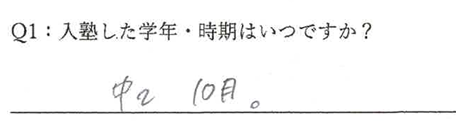 Q1：入塾した学年・時期はいつですか？
中2 10月。